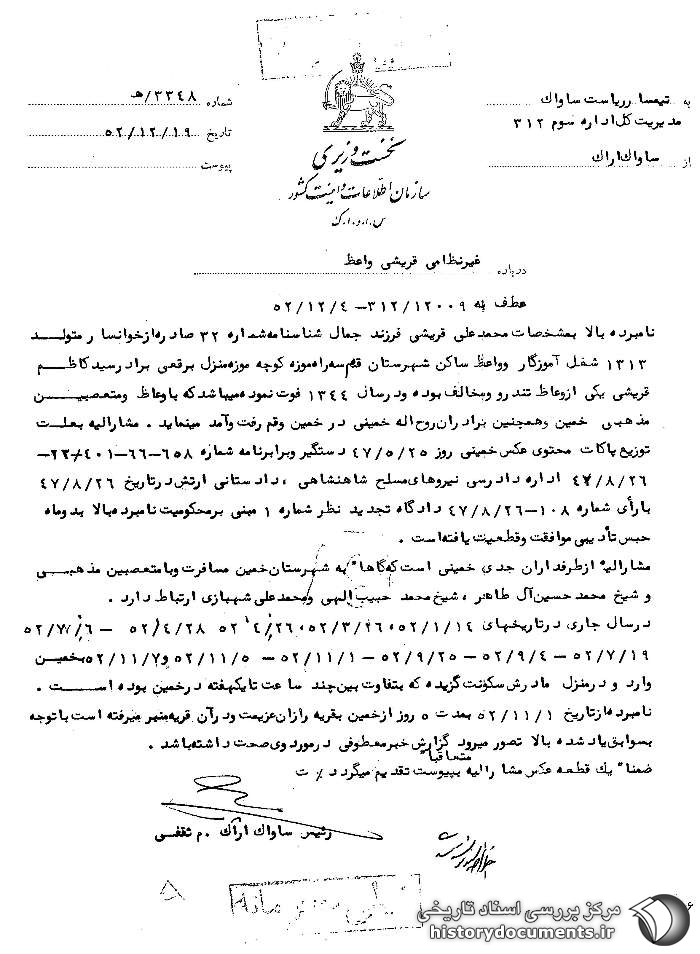 به تیمسار ریاست ساواک
مدیریت کل اداره سوم ۳۱۲
از ساواک اراک
شماره ۳۳۴۸/هـ
تاریخ ۵۲/۱۲/۱۹
پیوست
نخست وزیری
سازمان اطلاعات و امنیت کشور
س.ا.و.ا.ک
درباره غیرنظامی قریشی واعظ
عطف به ۳۱۲/۱۲۰۰۹ – ۵۲/۱۲/۴
نامبرده بالا بمشخصات محمدعلی قریشی فرزند جمال شناسنامه شماره ۳۲ صادره از خوانسار متولد
۱۳۱۳ شغل آموزگار و واعظ ساکن شهرستان قم سه راه موزه کوچه موزه منزل برقعی برادر سید کاظم
قریشی یکی از وعاظ تندرو و مخالف بوده و در سال ۱۳۴۴ فوت نموده میباشد که با وعاظ و متعصبین
مذهبی خمین و همچنین برادران روح اله خمینی در خمین و قم رفت و آمد مینماید . مشارالیه بعلت
توزیع پاکات محتوی عکس خمینی روز ۴۷/۵/۲۵ دستگیر و برابر نامه شماره ۶۵۸–۶۶–۴۰۱/
۴۷/۸/۲۶ اداره دادرسی نیروهای مسلح شاهنشاهی ، دادستانی ارتش در تاریخ ۴۷/۸/۲۶
با رأی شماره ۱۰۸–۴۷/۸/۲۶ دادگاه تجدید نظر شماره ۱ مبنی بر محکومیت نامبرده بالا بدو ماه
حبس تأدیبی موافقت و قطعیت یافته است .
مشارالیه از طرفداران جدی خمینی است که گاهاً به شهرستان خمین مسافرت و با متعصبین مذهبی
و شیخ محمد حسین آل طاهر ، شیخ محمد حبیب الهی و محمدعلی شهبازی ارتباط دارد .
در سال جاری در تاریخهای ۵۲/۱/۱۴ ، ۵۲/۳/۲۶ ، ۵۲/۴/۲۶ ، ۵۲/۴/۲۸ – ۵۲/۷/۶
۵۲/۷/۱۹ – ۵۲/۹/۴ – ۵۲/۹/۲۵ – ۵۲/۱۱/۱ – ۵۲/۱۱/۵ و ۵۲/۱۱/۷ بخمین
وارد و در منزل مادرش سکونت گزیده که بتفاوت بین چند ساعت تا یکهفته در خمین بوده است .
نامبرده از تاریخ ۵۲/۱۱/۱ بمدت ۵ روز از خمین بقریه رازان عزیمت و در آن قریه منبر میرفته است با توجه
بسوابق یاد شده بالا تصور میرود گزارش خبر معطوفی در مورد وی صحت داشته باشد .
ضمناً یک قطعه عکس مشارالیه بپیوست متعاقباً تقدیم میگردد ٪ ت
رئیس ساواک اراک . م ثقفی
۵
مرکز بررسی اسناد تاریخی
historydocuments.ir
۶